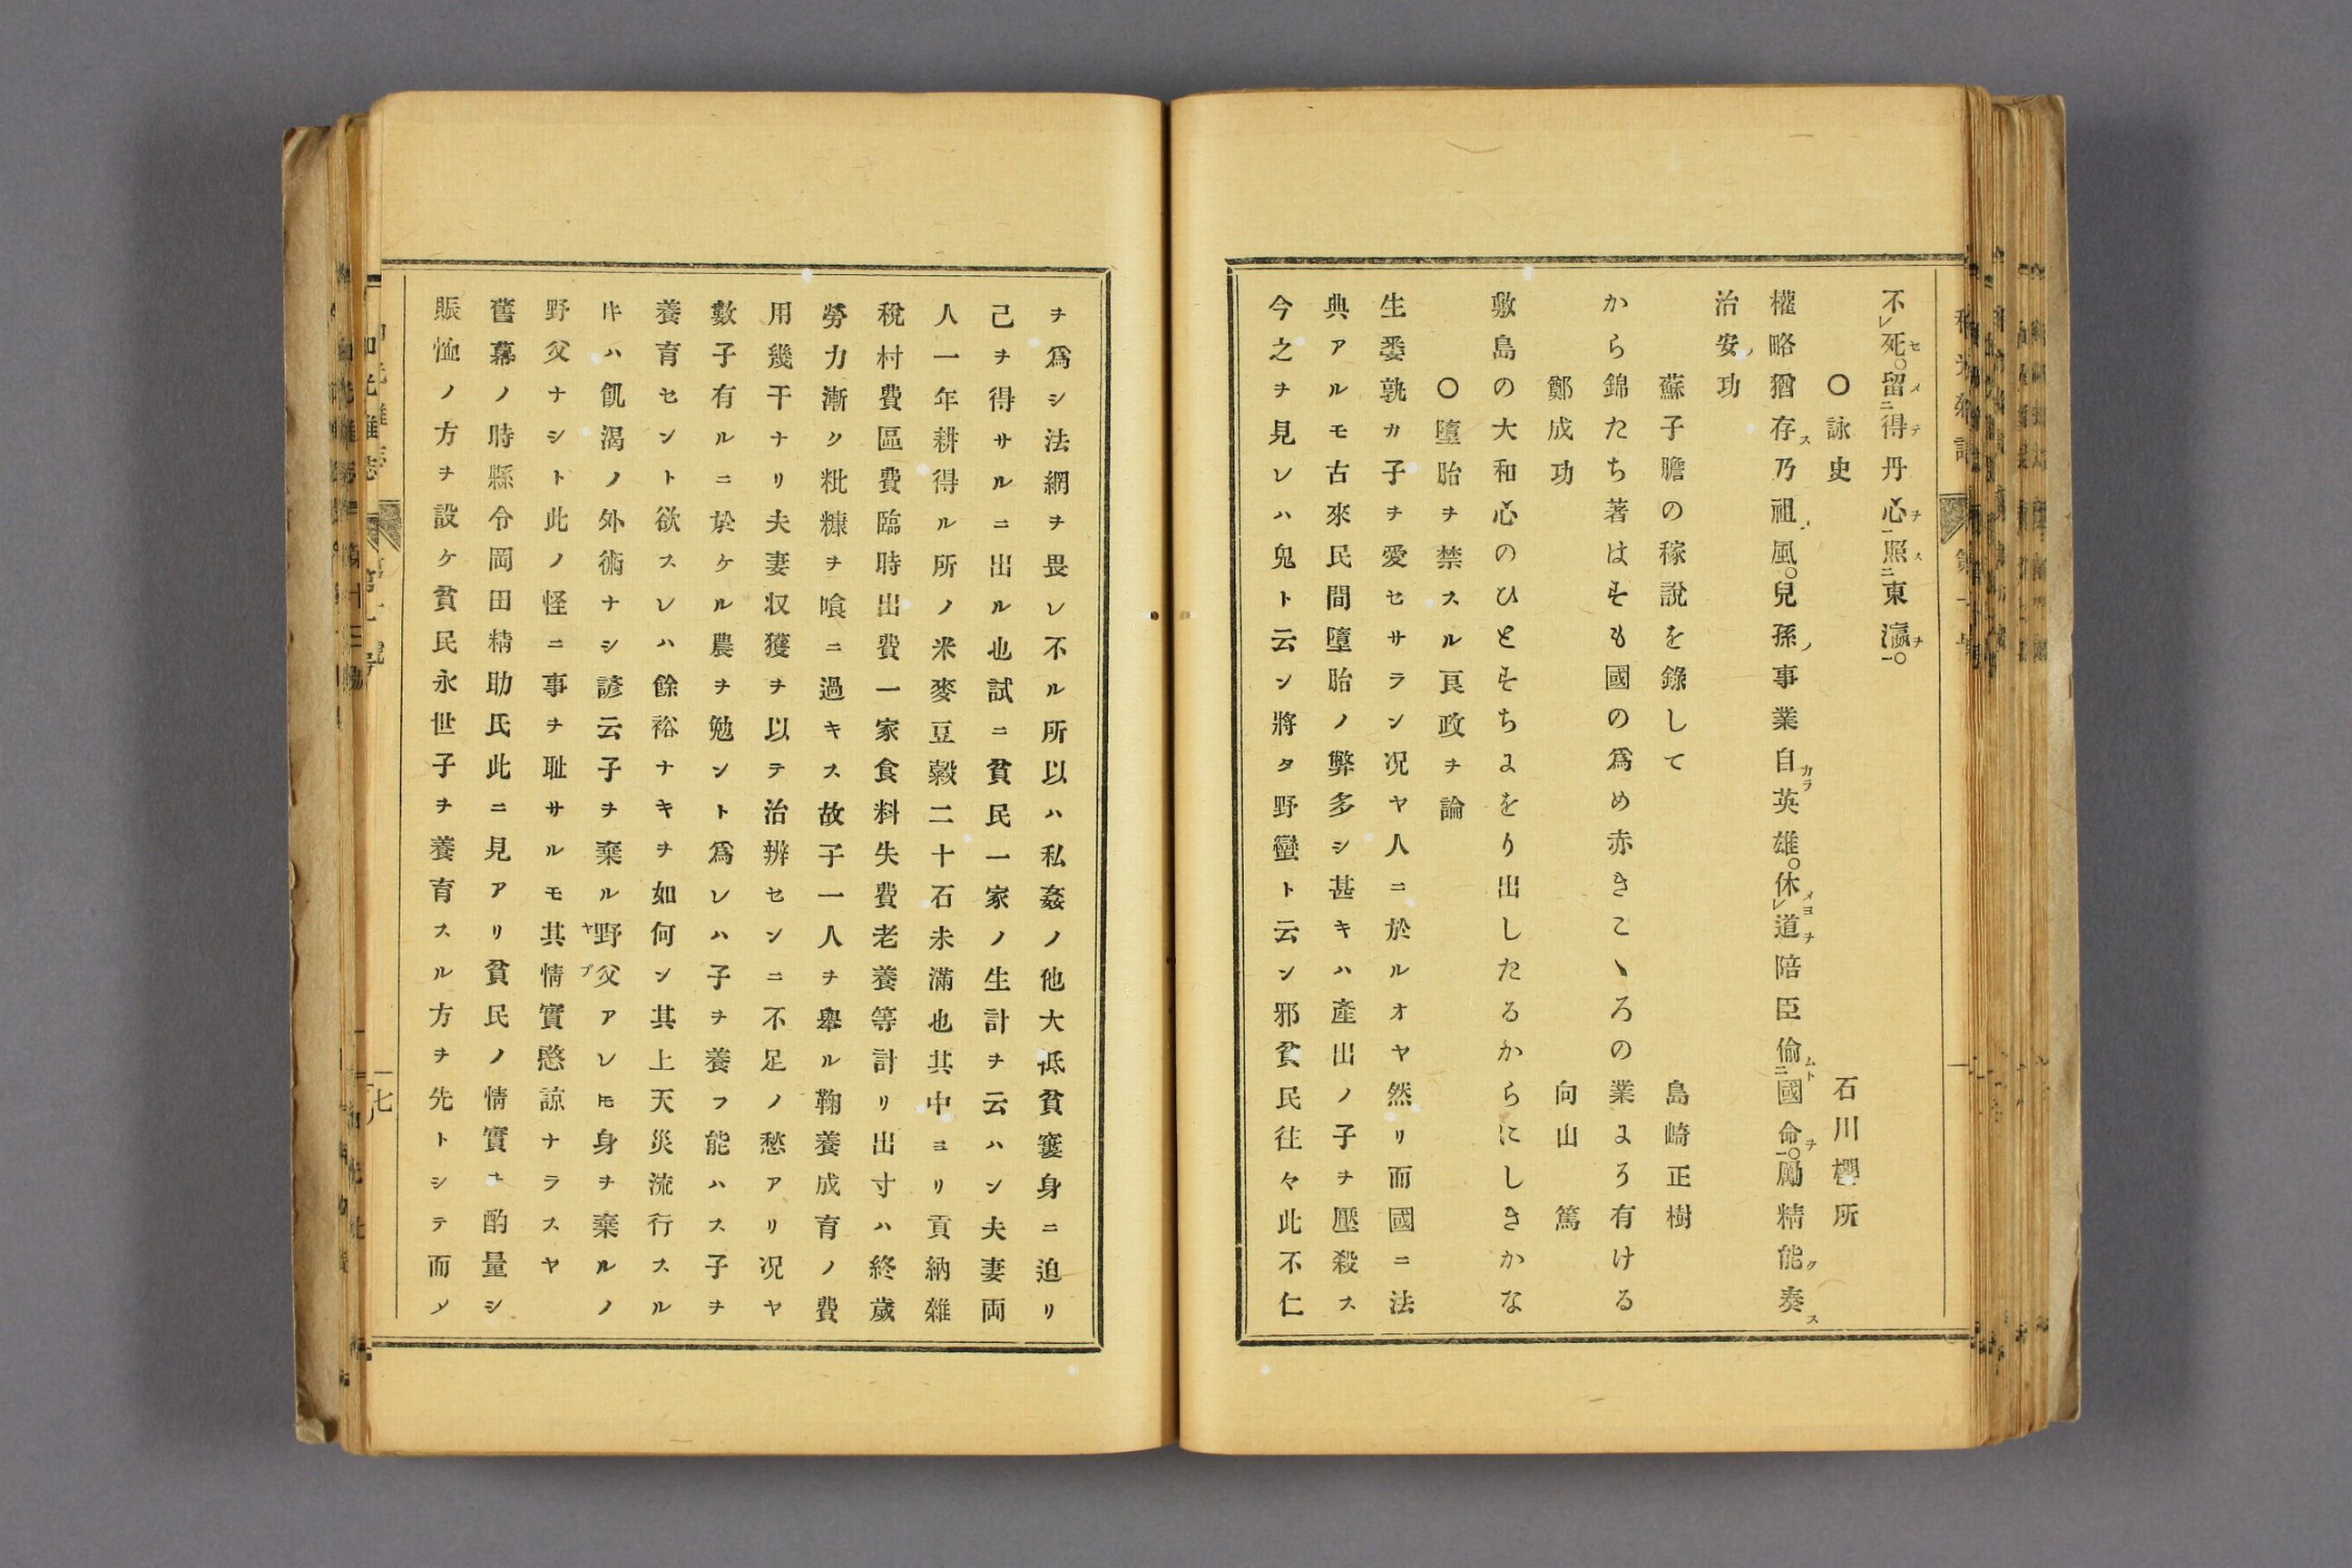 不レ死セ。留メニ得テ丹心ヲ一照スニ東瀛ヲ一。
○詠史 石川櫻所
權略猶存ス乃祖ノ風。兒孫ノ事業自カラ英雄。休メヨレ道ヲ陪臣偷ムトニ國命ヲ一。勵精能ク奏ス
治安ノ功
蘇子膽の稼說を錄して 島崎正樹
から錦たち著はすも國の爲め赤きこゝろの業よろ有ける
鄭成功 向山篤
敷島の大和心のひとすちよをり出したるからにしきかな
○墮胎ヲ禁スル良政ヲ論
生委孰カ子ヲ愛セサラン况ヤ人ニ於ルオヤ然リ而國ニ法
典アルモ古來民間墮胎ノ弊多シ甚キハ產出ノ子ヲ壓殺ス
今之ヲ見レハ鬼ト云ン將タ野蠻ト云ン邪貧民往々此不仁
ヲ爲シ法網ヲ畏レ不ル所以ハ私姦ノ他大抵貧窶身ニ迫リ
己ヲ得サルニ出ル也試ニ貧民一家ノ生計ヲ云ハン夫妻両
人一年耕得ル所ノ米麥豆穀二十石未滿也其中ヨリ貢納雜
稅村費區費臨時出費一家食料失費老養等計リ出寸ハ終歲
勞力漸ク粃糠ヲ喰ニ過キス故子一人ヲ擧ル鞠養成育ノ費
用幾干ナリ夫妻収獲ヲ以テ治辨センニ不足ノ愁アリ况ヤ
數子有ルニ於ケル農ヲ勉ント爲レハ子ヲ養フ能ハス子ヲ
養育セント欲スレハ餘裕ナキヲ如何ン其上天災流行スル
㆐ハ飢渴ノ外術ナシ諺云子ヲ棄ル野父ヤブアレ𪜈身ヲ棄ルノ
野父ナシト此ノ怪ニ事ヲ耻サルモ其情實愍諒ナラスヤ
舊幕ノ時縣令岡田精助氏此ニ見アリ貧民ノ情實ヲ酌量シ
賑恤ノ方ヲ設ケ貧民永世子ヲ養育スル方ヲ先トシテ而メ
七